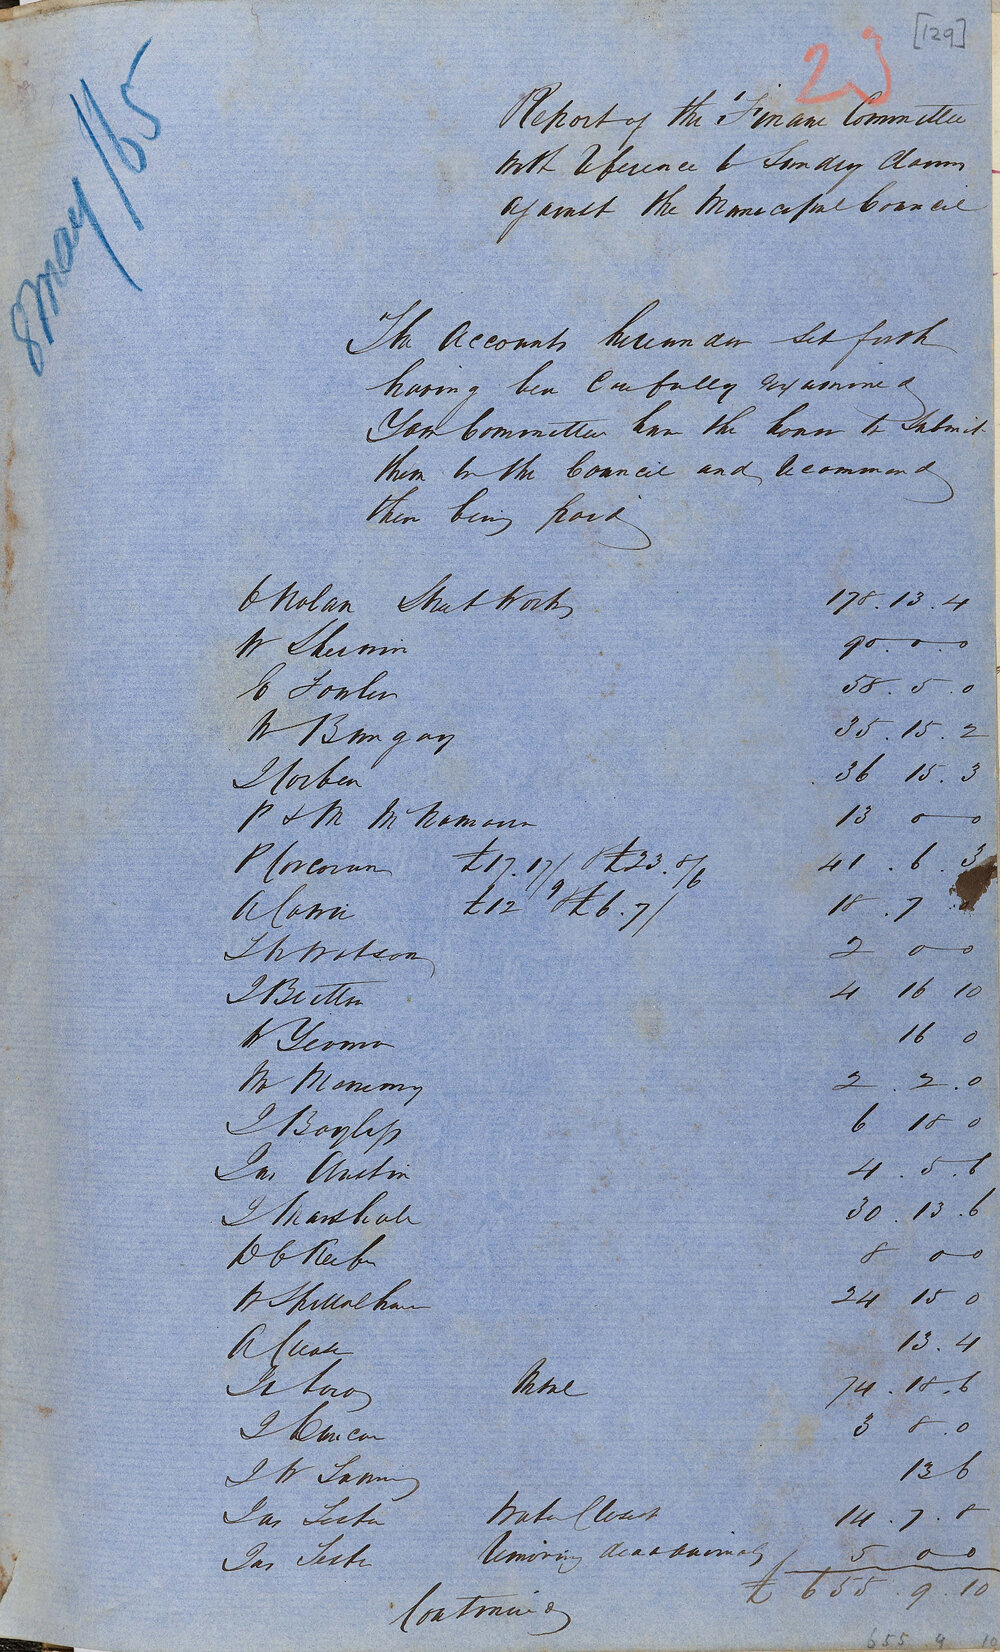 [129]
23
8 May/65
Report of the Finance Committee
with reference to Sundry Claims
against the Municipal Council
The Accounts hereunder set forth
having been Carefully examined
Your Committee have the honor to Submit
them to the Council and recommend
them being paid
C Nolan Street Works 178.13.4
W Sherwin 90.0.0
C Fowler 58.5.0
W Bungay 35.15.2
J Corben 36 15.3
P & M McNamara 13 0 0
P Corcoran £17.17/9 & £23.8/6 41.6.3
A Cowie £12 & £6.7/ 18.7
Watson 2 0 0
J Britton 4 16 10
W Yeoman 16 0
2.2.0
J Bayliss 6 18 0
Jas Austin 4.5.6
J Marshall 30.13.6
8 0 0
24 15 0
A 13.4
Metal 74.18.6
J Duncan 3 8.0
J W 13 6
Jas Water Closet 14.7.8
Jas removing dead animals 5 0 0
£ 655.9.10
Continued
655 9 10